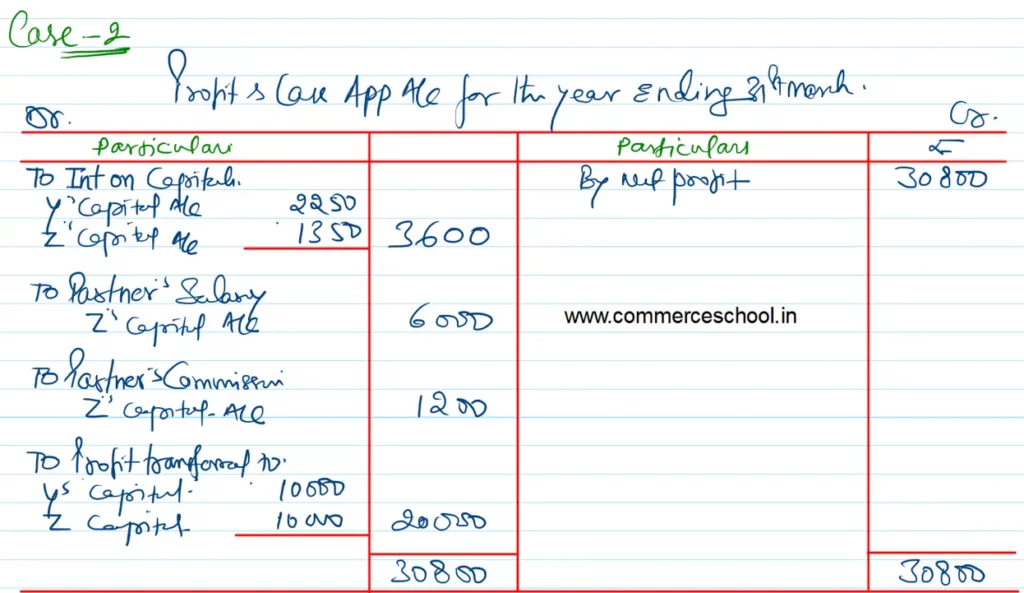 Case - 2
Profit & Loss App A/c for the year Ending 31st march.
Dr. Cr.
Particulars Particulars ₹
To Int on Capitals. By net profit 30800
Y's Capital A/c 2250
Z's Capital A/c 1350 3600
To Partner's Salary
Z's Capital A/c 6000 www.commerceschool.in
To Partner's Commission
Z's Capital A/c 1200
To Profit transferred to.
Y's Capital 10000
Z Capital 10000 20000
30800 30800